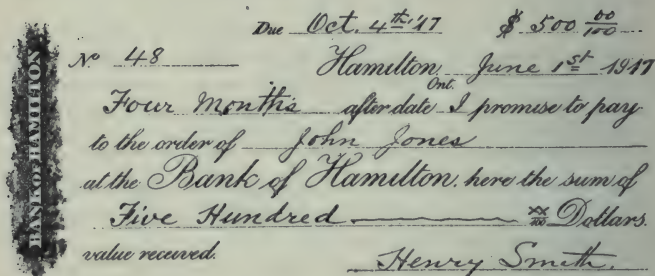 Due Oct. 4th '17 $ 500 00/100
No 48 Hamilton, Ont. June 1st 1917
Four Months after date I promise to pay
to the order of John Jones
at the Bank of Hamilton, here the sum of
Five Hundred xx/100 Dollars.
value received. Henry Smith.
BANK OF HAMILTON